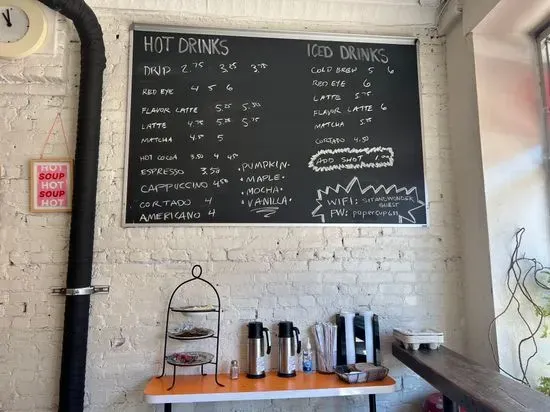 HOT DRINKS
DRIP 2.75 3.25 3.75
RED EYE 4 5 6
FLAVOR LATTE 5.25 5.50
LATTE 4.75 5.25 5.75
MATCHA 4.50 5
HOT COCOA 3.50 4 4.50
ESPRESSO 3.50
CAPPUCCINO 4.50
CORTADO 4
AMERICANO 4
• PUMPKIN •
• MAPLE •
• MOCHA •
• VANILLA •
ICED DRINKS
COLD BREW 5 6
RED EYE 6
LATTE 5.75
FLAVOR LATTE 6
MATCHA 5.75
CORTADO 4.50
ADD SHOT 1.00
WIFI: SITANDWONDER
GUEST
PW: papercup611
HOT
SOUP
HOT
SOUP
HOT